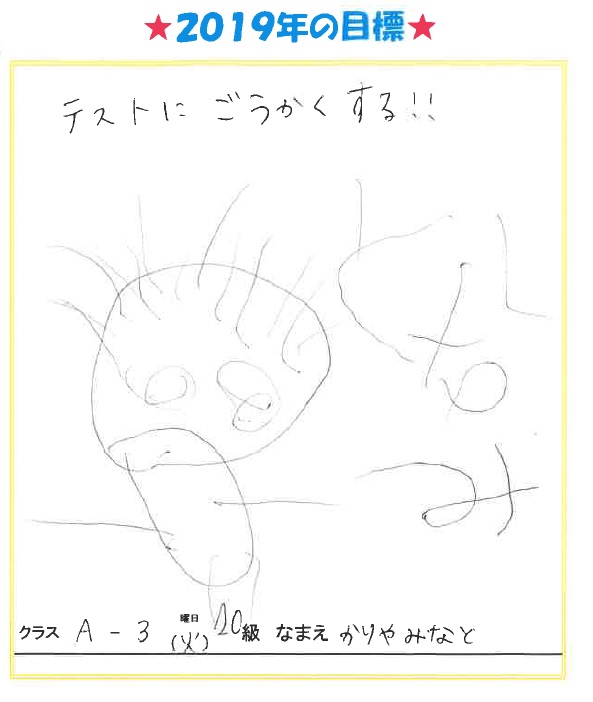 ★2019年の目標★
テストに ごうかくする!!
み
クラス A-3 曜日(火) 20級 なまえ かりやみなと